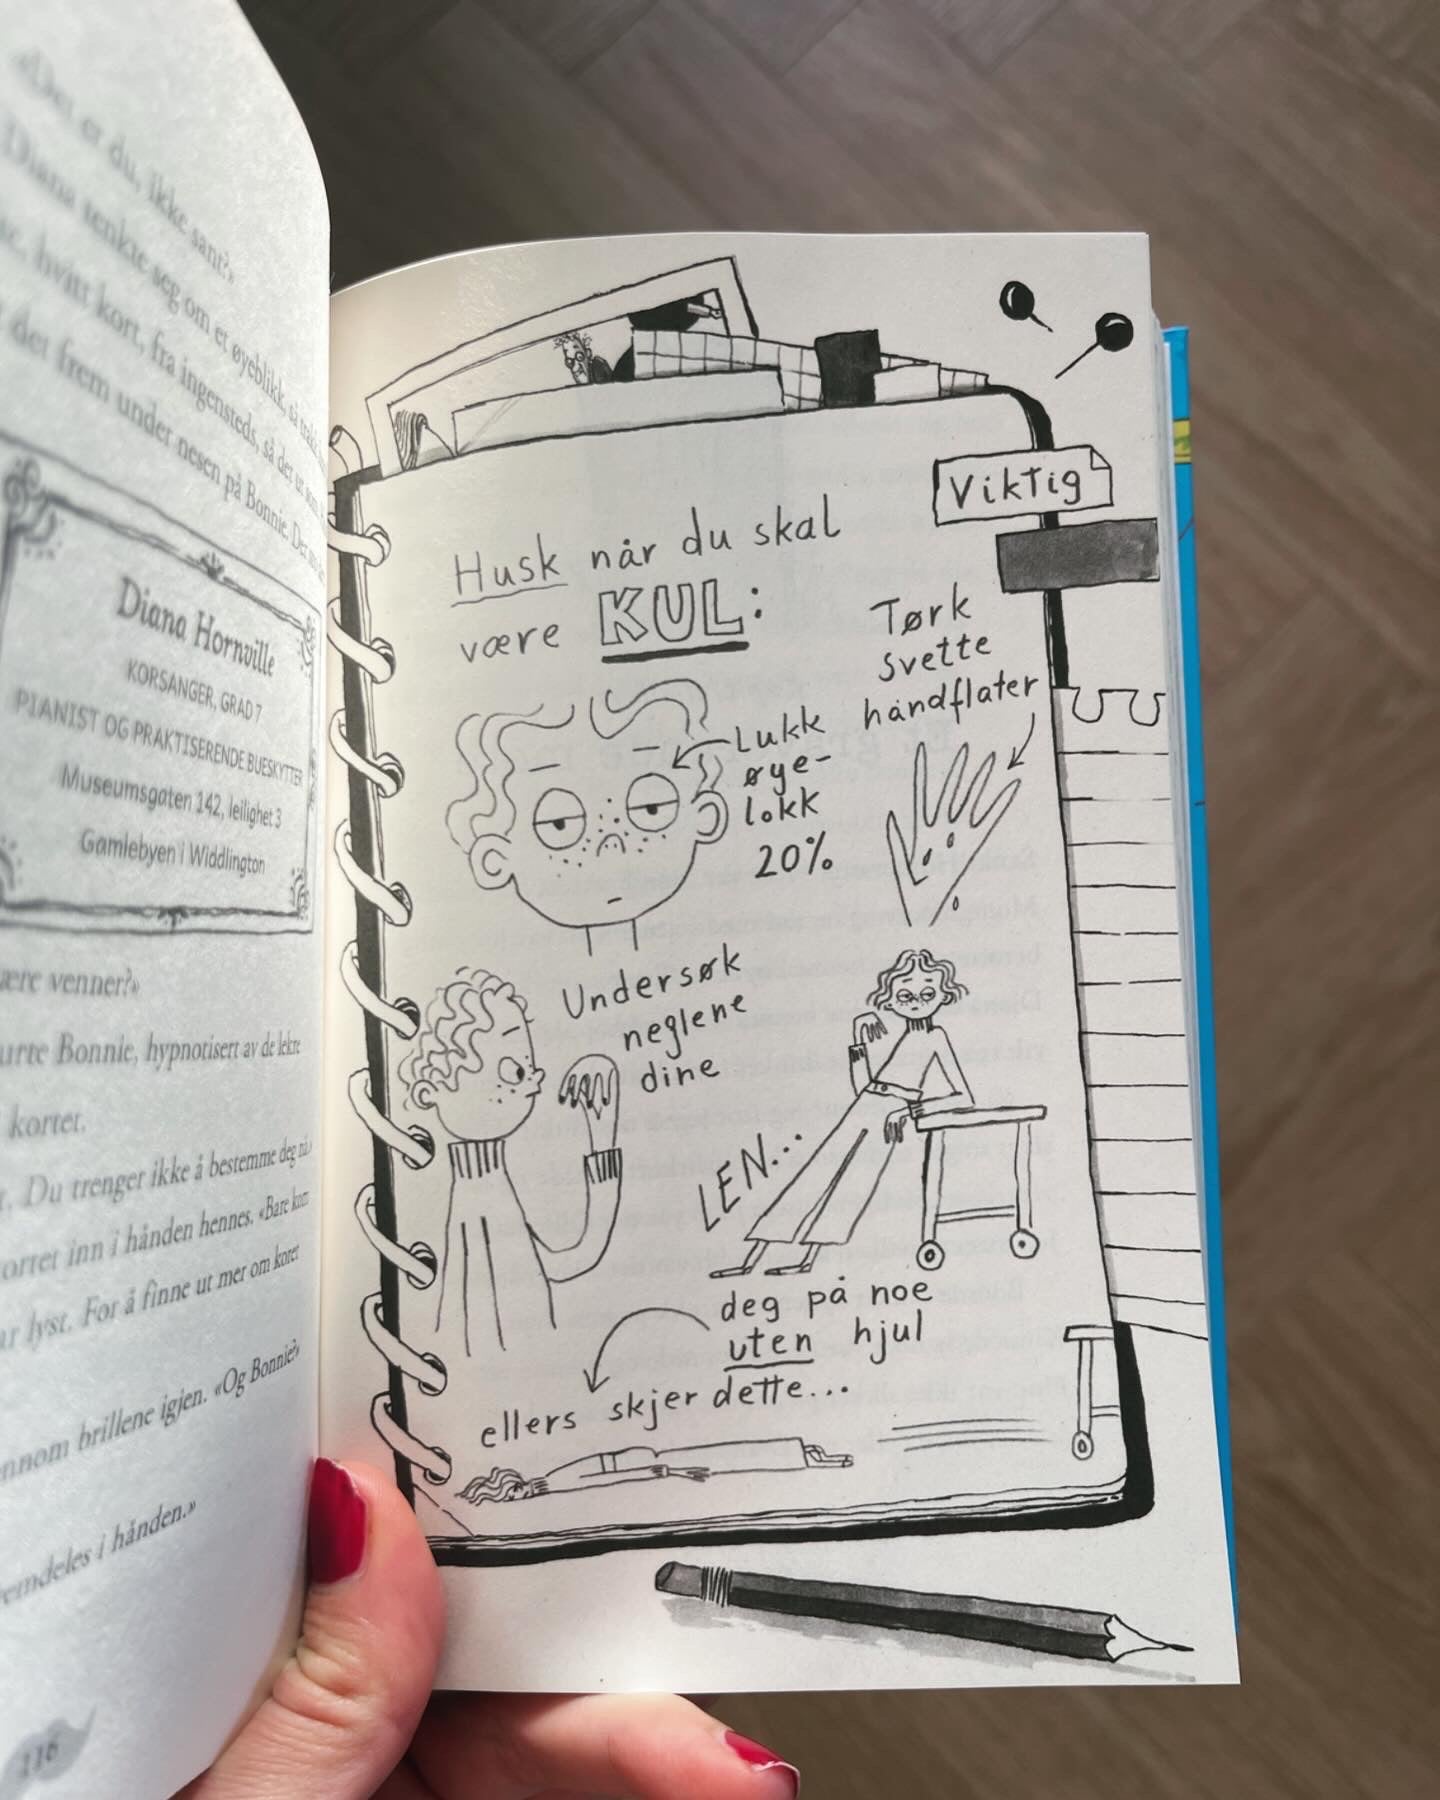 «Det er du, ikke sant?»
Diana tenkte seg om et øyeblikk, så trakk
hvitt kort, fra ingensteds, så det ut som
det frem under nesen på Bonnie. Det
Diana Hornville
KORSANGER, GRAD 7
PIANIST OG PRAKTISERENDE BUESKYTTER
Museumsgaten 142, leilighet 3
Gamlebyen i Widdlington
være venner?»
Bonnie, hypnotisert av de lekre
kortet.
Du trenger ikke å bestemme deg nå.»
kortet inn i hånden hennes. «Bare kom
har lyst. For å finne ut mer om koret
gjennom brillene igjen. «Og Bonnie?»
fremdeles i hånden.»
116
Viktig
Husk når du skal
være KUL:
Tørk
svette
håndflater
Lukk
øye-
lokk
20%
Undersøk
neglene
dine
LEN...
deg på noe
uten hjul
ellers skjer dette...